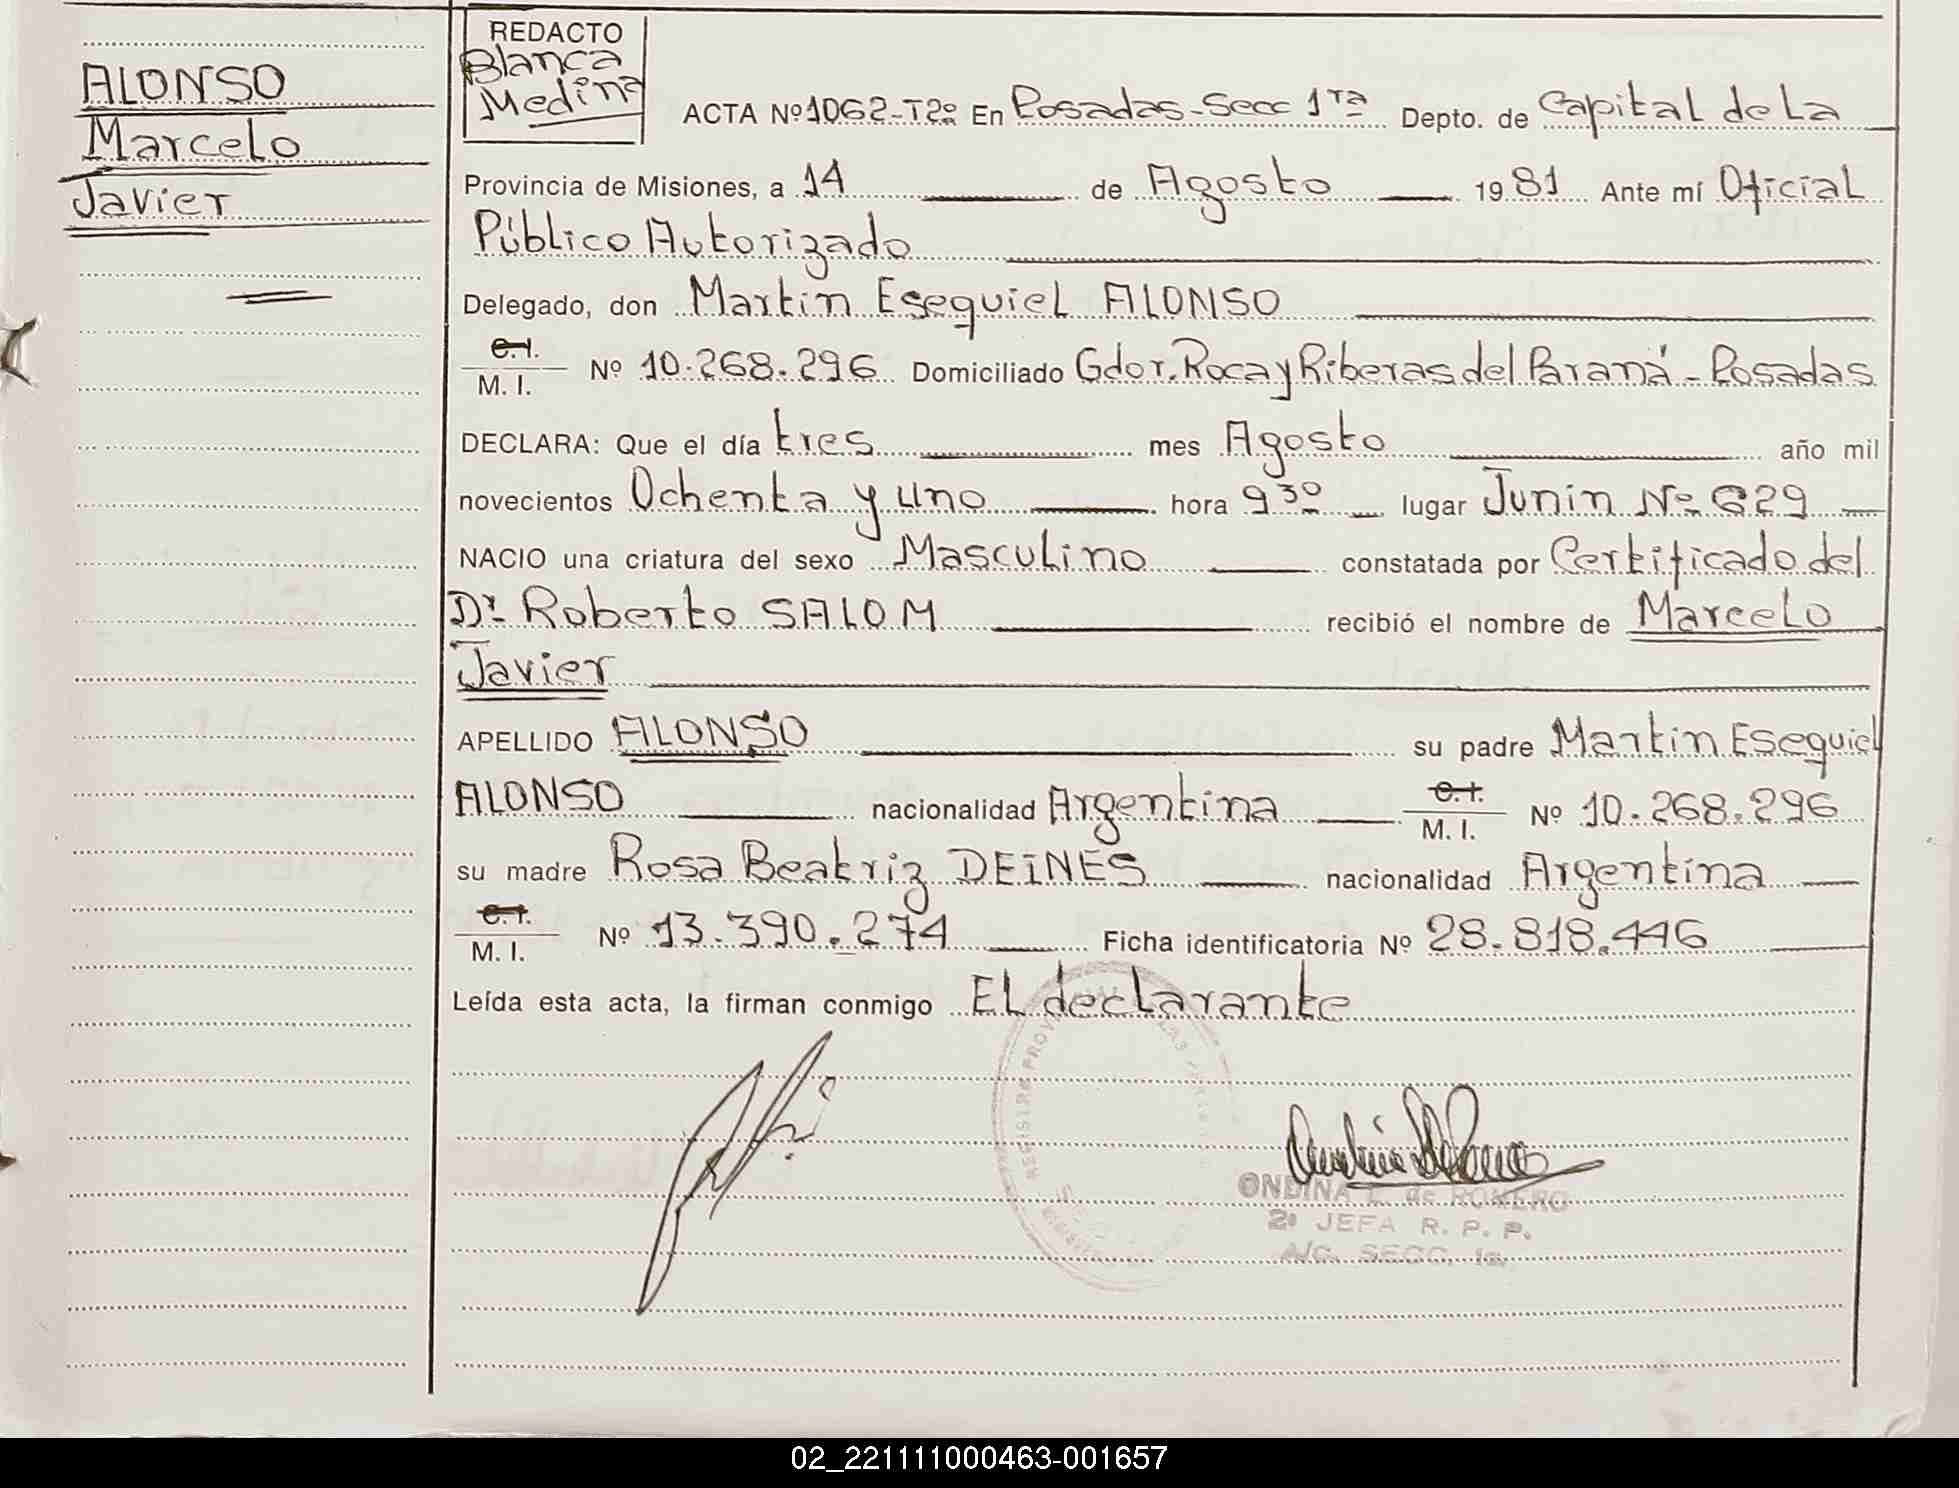 ALONSO
Marcelo
Javier
REDACTO
Blanca
Medina
ACTA Nº 1062-T2º En Posadas-Secc 1ra Depto. de Capital de La
Provincia de Misiones, a 14 de Agosto 1981 Ante mí Oficial
Público Autorizado
Delegado, don Martin Esequiel ALONSO
C.I.
M. I. Nº 10.268.296 Domiciliado Gdor. Roca y Riberas del Paraná - Posadas
DECLARA: Que el día tres mes Agosto año mil
novecientos Ochenta y uno hora 9 30 lugar Junin Nº 629
NACIO una criatura del sexo Masculino constatada por Certificado del
Dr. Roberto SALOM recibió el nombre de Marcelo
Javier
APELLIDO ALONSO su padre Martin Esequiel
ALONSO nacionalidad Argentina C.I.
M. I. Nº 10.268.296
su madre Rosa Beatriz DEINES nacionalidad Argentina
C.I.
M. I. Nº 13.390.274 Ficha identificatoria Nº 28.818.446
Leída esta acta, la firman conmigo El declarante
REGISTRO PROV
ONDINA E. de ROMERO
2º JEFA R. P. P.
A/C. SECC. 1a.
02_221111000463-001657